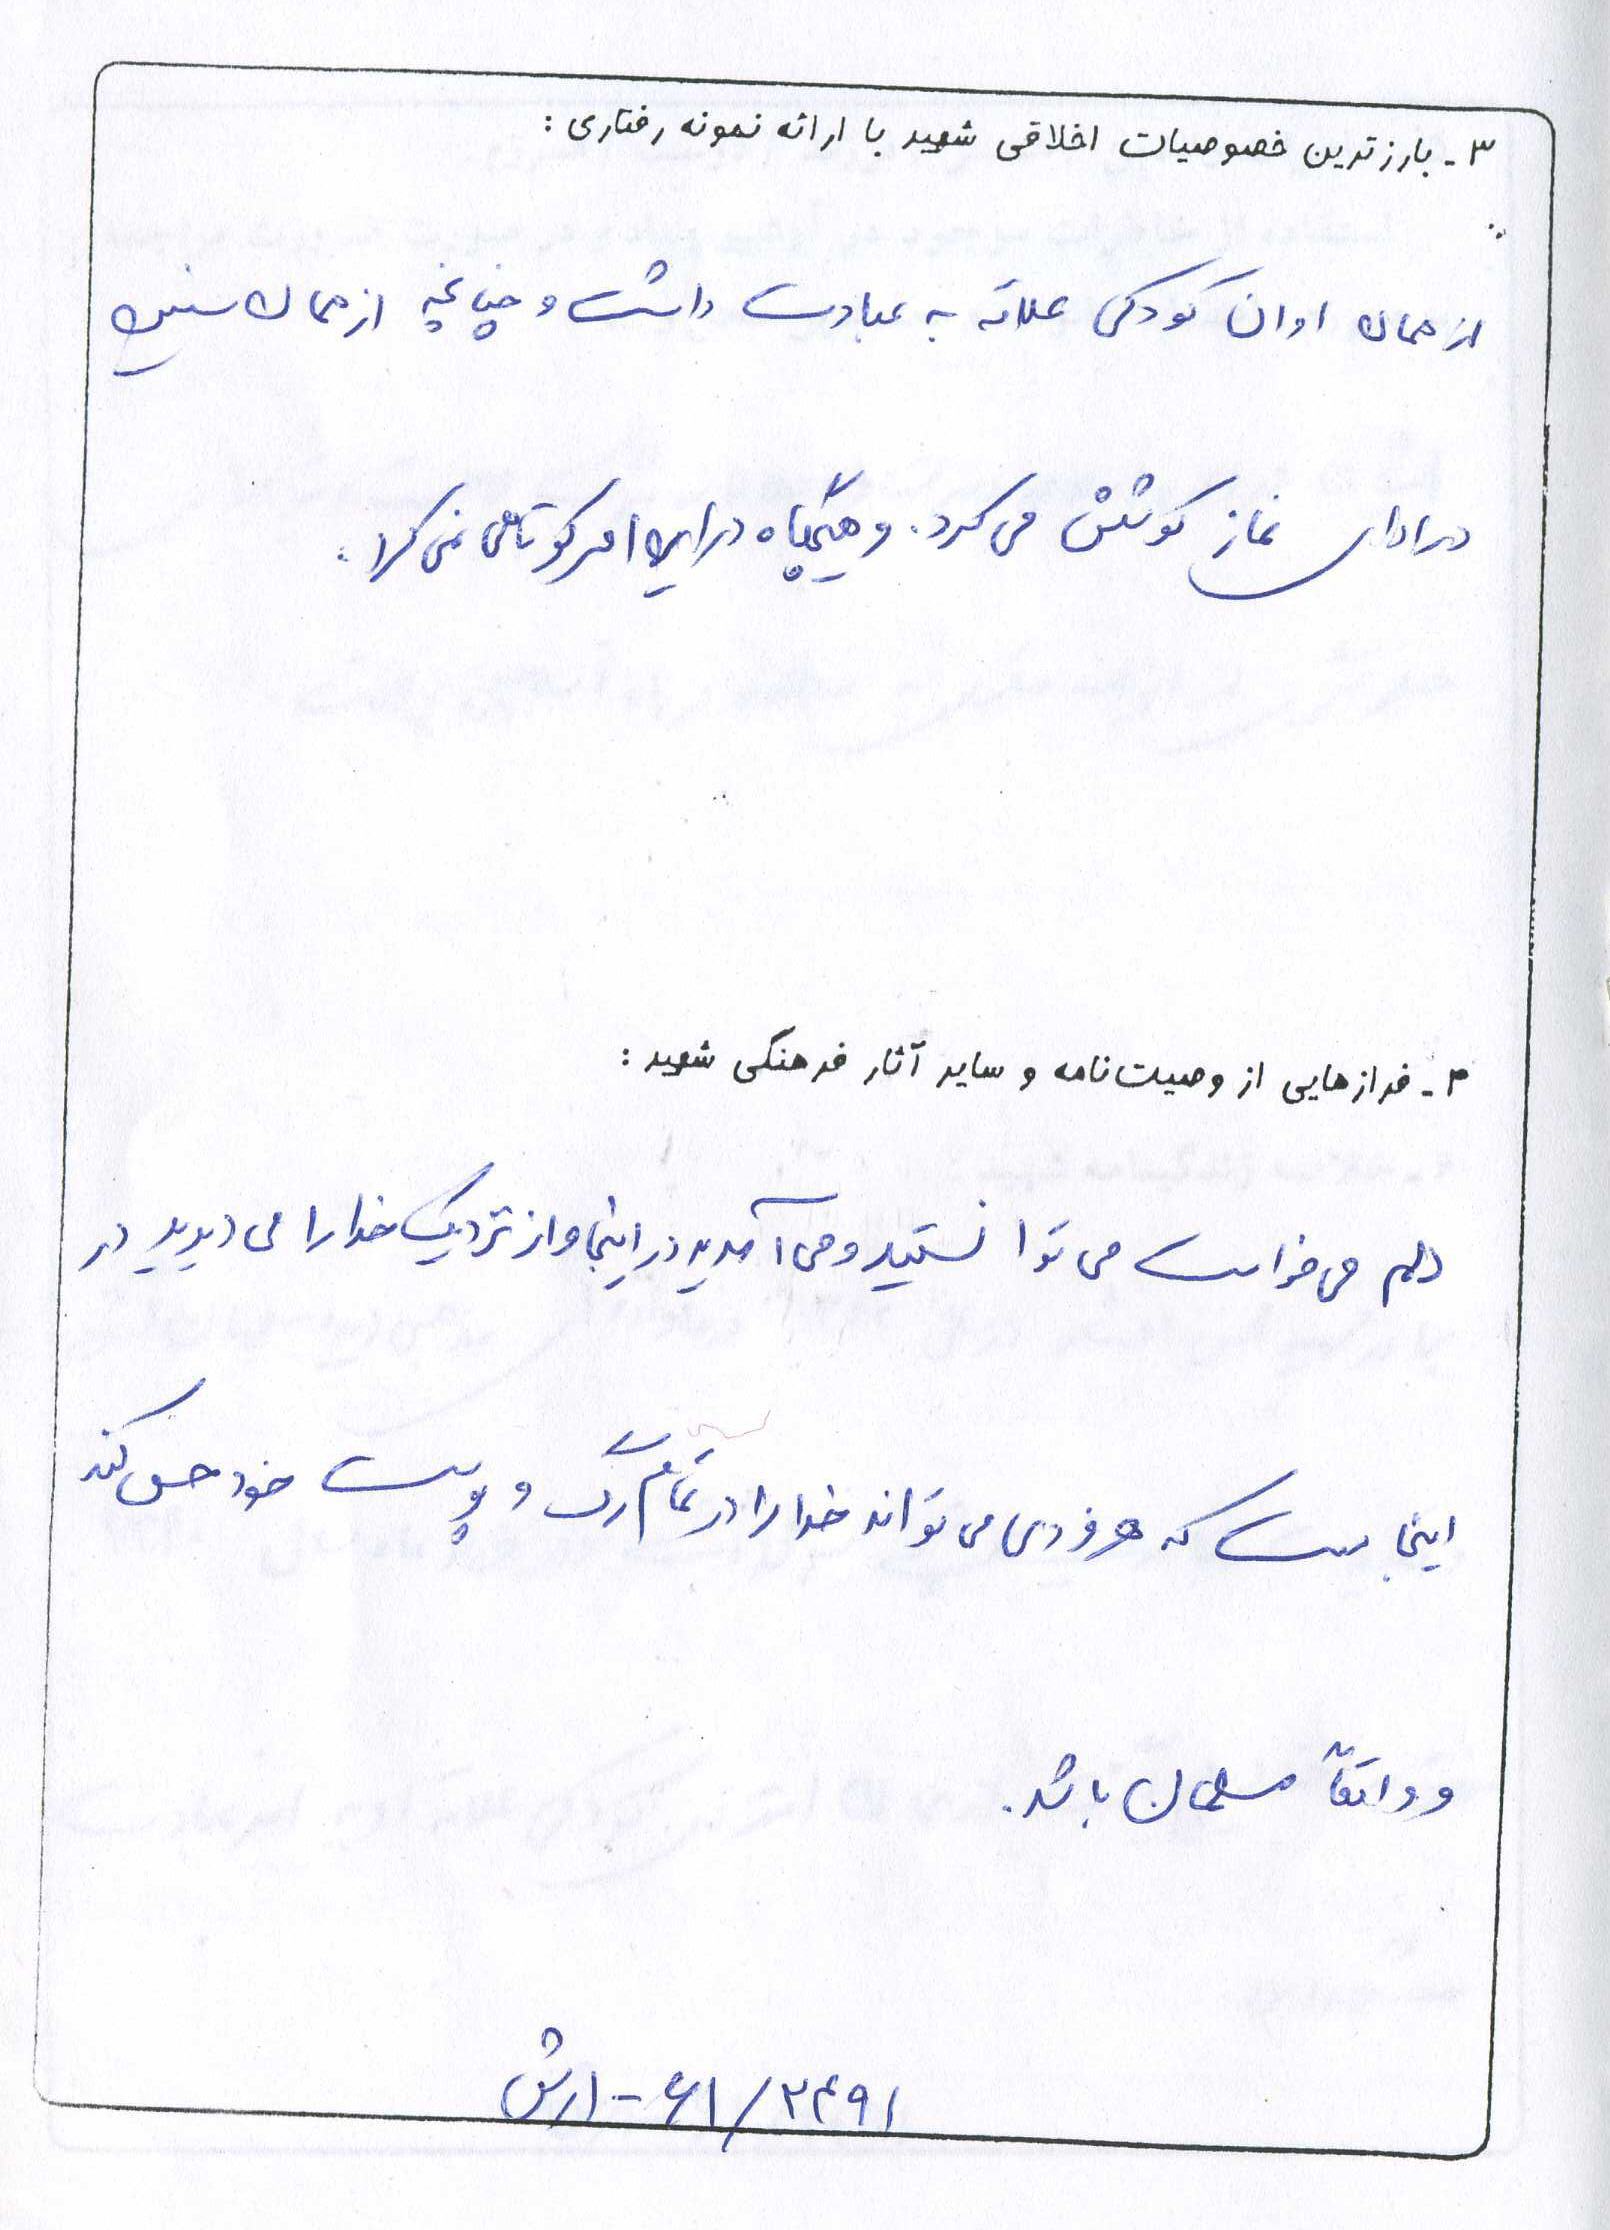 ۳- بارزترین خصوصیات اخلاقی شهید با ارائه نمونه رفتاری :
از همان اوان کودکی علاقه به عبادت داشت و چنانچه از همان سنین
در ادای نماز کوشش می کرد. و هیچگاه در این امر کوتاهی نمی کرد.
۴- فرازهایی از وصیت‌نامه و سایر آثار فرهنگی شهید :
دلم می خواست می توانستید و می آمدید در اینجا و از نزدیک خدا را می دیدید در
اینجاست که هر فردی می تواند خدا را در تمام رگ و پوست خود حس کند
و واقعاً مسلمان باشد.
۶۱/۲۴۹۱ - ارتش